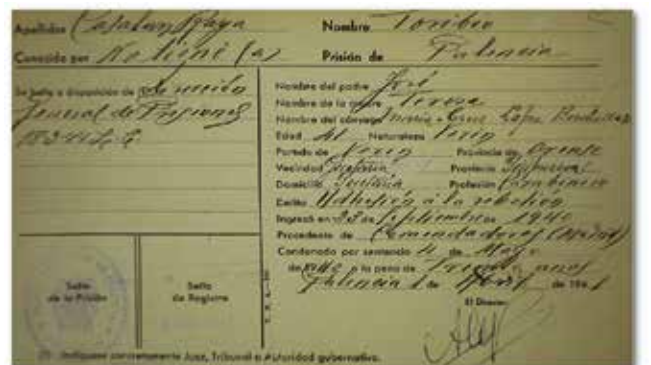 Apellidos Catalan Raya Nombre Toribio
Conocido por (a) Prisión de Palencia
Se halla a disposición de Dirección
General de Prisiones
Nombre del padre José
Nombre de la madre Teresa
Nombre del cónyuge María Cruz López
Edad 41 Naturaleza Verin
Partido de Verin Provincia de Orense
Vecindad Provincia
Domicilio Profesión Carabinero
Delito Adhesión a la rebelión
Ingresó en 23 de Septiembre de 1940
Procedente de Comendadoras (Madrid)
Condenado por sentencia 4 de Mayo
de 1940 a la pena de Treinta años
Palencia 1 de Abril de 194
Sello
de la Prisión
Sello
de Registro
El Director,
(1) Indíquese concretamente Juez, Tribunal o Autoridad gubernativa.